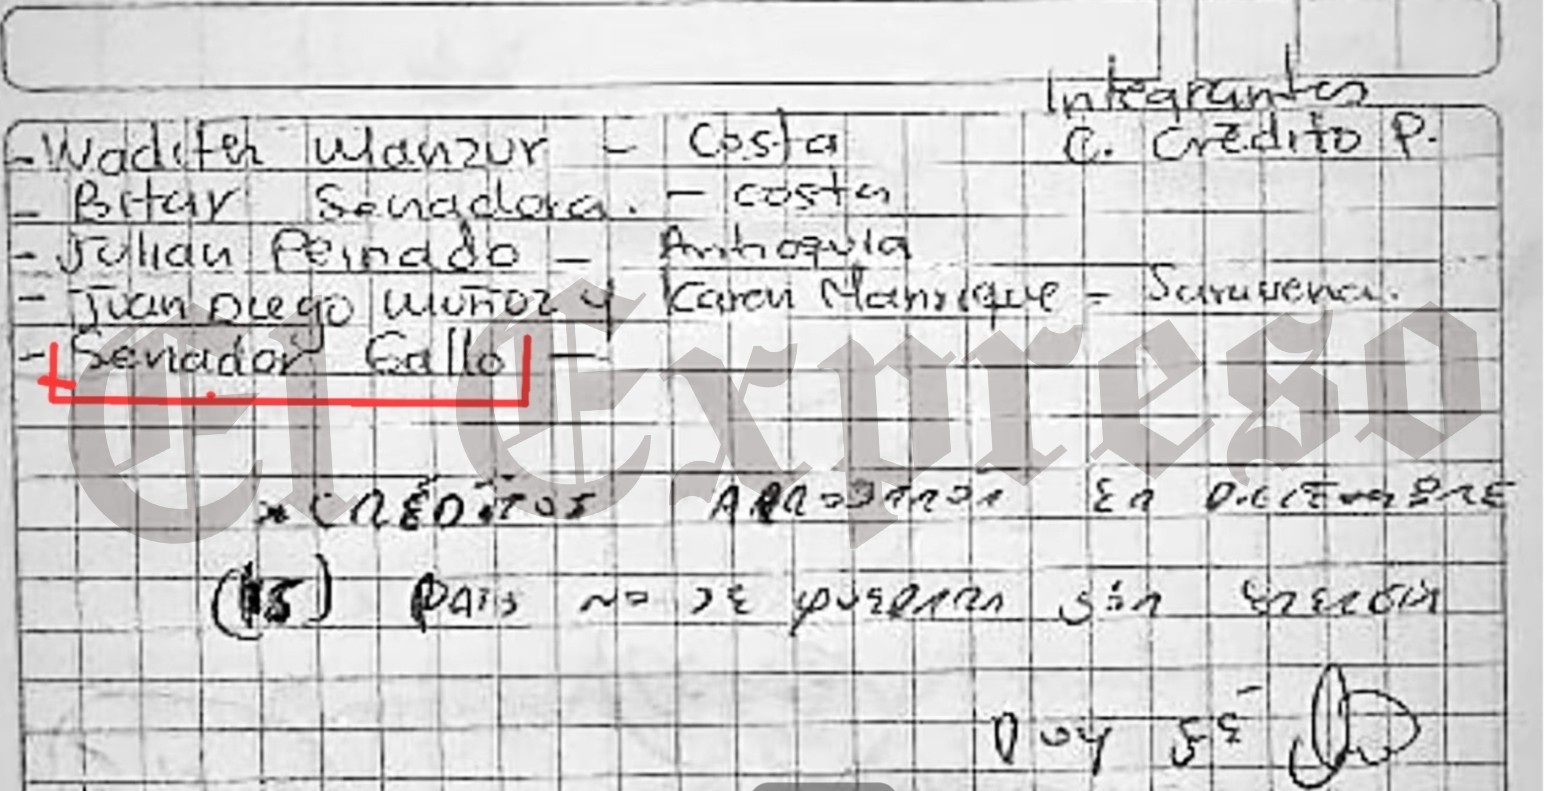 Integrantes
C. Crédito P.
- Wadith Manzur - Costa
- Bitar Senadora. - costa
- Julian Peinado - Antioquia
- Juan Diego Muñoz y Karen Manrique - Saravena.
- Senador Gallo -
El Expreso
* CRÉDITOS APROBARON En DICIEMBRE
(15) PARA no SE QUEDARAn sin
Doy FÉ